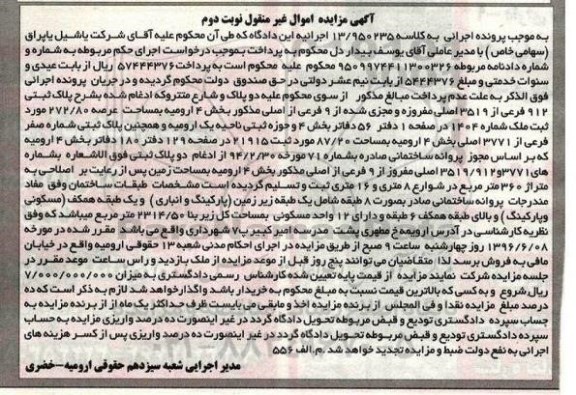 آگهی مزایده اموال غیر منقول نوبت دوم
به موجب پرونده اجرائی به کلاسه ۱۳/۹۵۰۲۳۵ اجرائیه این دادگاه که طی آن محکوم علیه آقای شرکت یاشیل یاپراق
(سهامی خاص) با مدیر عاملی آقای یوسف بیدار دل محکوم به پرداخت بموجب درخواست اجرای حکم مربوطه به شماره و
شماره دادنامه مربوطه ۹۵۰۹۹۷۴۴۱۱۳۰۰۳۲۶ محکوم علیه محکوم است به پرداخت ۵۷۴۴۴۳۷۶ ریال از بابت عیدی و
سنوات خدمتی و مبلغ ۵۴۴۴۳۷۶ از بابت نیم عشر دولتی در حق صندوق دولت محکوم گردیده و در جریان پرونده اجرائی
فوق الذکر به علت عدم پرداخت مبالغ مذکور از سوی محکوم علیه دو پلاک و شارع متتروکه ادغام شده بشرح پلاک ثبتی
۹۱۲ فرعی از ۳۵۱۹ اصلی مفروزه و مجزی شده از ۹ فرعی از اصلی مذکور بخش ۴ ارومیه بمساحت عرصه ۲۷۲/۸۰ مورد
ثبت ملک شماره ۱۴۰۴ در صفحه ۱ دفتر ۵۶ دفاتر بخش ۴ و حوزه ثبتی ناحیه یک ارومیه و همچنین پلاک ثبتی شماره صفر
فرعی از ۳۷۷۱ اصلی بخش ۴ ارومیه بمساحت ۸۷/۲۰ مورد ثبت ۲۱۹۱۵ در صفحه ۱۲۹ دفتر ۱۸۰ دفاتر بخش ۴ ارومیه
که بر اساس مجوز پروانه ساختمانی صادره بشماره ۷۱ مورخه ۹۴/۲/۳۰ از ادغام دو پلاک ثبتی فوق الاشعاره بشماره
های ۳۷۷۱و۳۵۱۹/۹۱۲ اصلی مفروز از ۹ فرعی از اصلی مذکور بخش ۴ ارومیه بمساحت زمین پس از رعایت بر اصلاحی به
متراژ ۳۶۰ متر مربع در شوارع ۸ متری و ۱۶ متری ثبت و تسلیم گردیده است مشخصات طبقات ساختمان وفق مفاد
مندرجات پروانه ساختمانی صادر بصورت ۸ طبقه شامل یک طبقه زیر زمین (پارکینگ و انباری) و یک طبقه همکف (مسکونی
وپارکینگ) و بالای طبقه همکف ۶ طبقه و دارای ۱۲ واحد مسکونی بمساحت کل زیر بنا ۲۳۱۴/۵۰ متر مربع میباشد که وفق
نظریه کارشناسی در آدرس ارومیه خ مطهری پشت مدرسه امیر کبیر ب۷ شهرداری واقع می باشد مقرر شده در مورخه
۱۳۹۶/۶/۰۸ روز چهارشنبه ساعت ۹ صبح از طریق مزایده در اجرای احکام مدنی شعبه ۱۳ حقوقی ارومیه واقع در خیابان
مافی به فروش برسد لذا متقاضیان می توانند پنج روز قبل از موعد مزایده از ملک بازدید و راس ساعت موعد مقرر در
جلسه مزایده شرکت نمایند مزایده از قیمت پایه تعیین شده کارشناس رسمی دادگستری به میزان ۷/۰۰۰/۰۰۰/۰۰۰
ریال شروع و به کسی که بالاترین قیمت نسبت به مبلغ محکوم به خریدار باشد واگذار خواهد شد لازم به ذکر است که ده
درصد مبلغ مزایده نقدا و فی المجلس از برنده مزایده اخذ و مابقی می بایست ظرف حداکثر یک ماه از از برنده مزایده به
حساب سپرده دادگستری تودیع و قبض مربوطه تحویل دادگاه گردد در غیر اینصورت ده درصد واریزی مزایده به حساب
سپرده دادگستری تودیع و قبض مربوطه تحویل دادگاه گردد در غیر اینصورت ده درصد واریزی پس از کسر هزینه های
اجرائی به نفع دولت ضبط و مزایده تجدید خواهد شد .م الف ۵۵۶
مدیر اجرایی شعبه سیزدهم حقوقی ارومیه–خضری